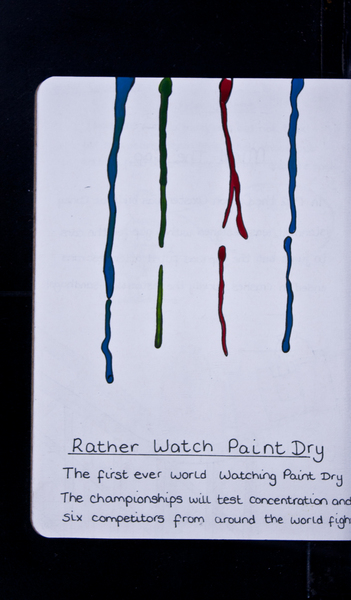 Rather Watch Paint Dry
The first ever world Watching Paint Dry
The championships will test concentration and
six competitors from around the world figh